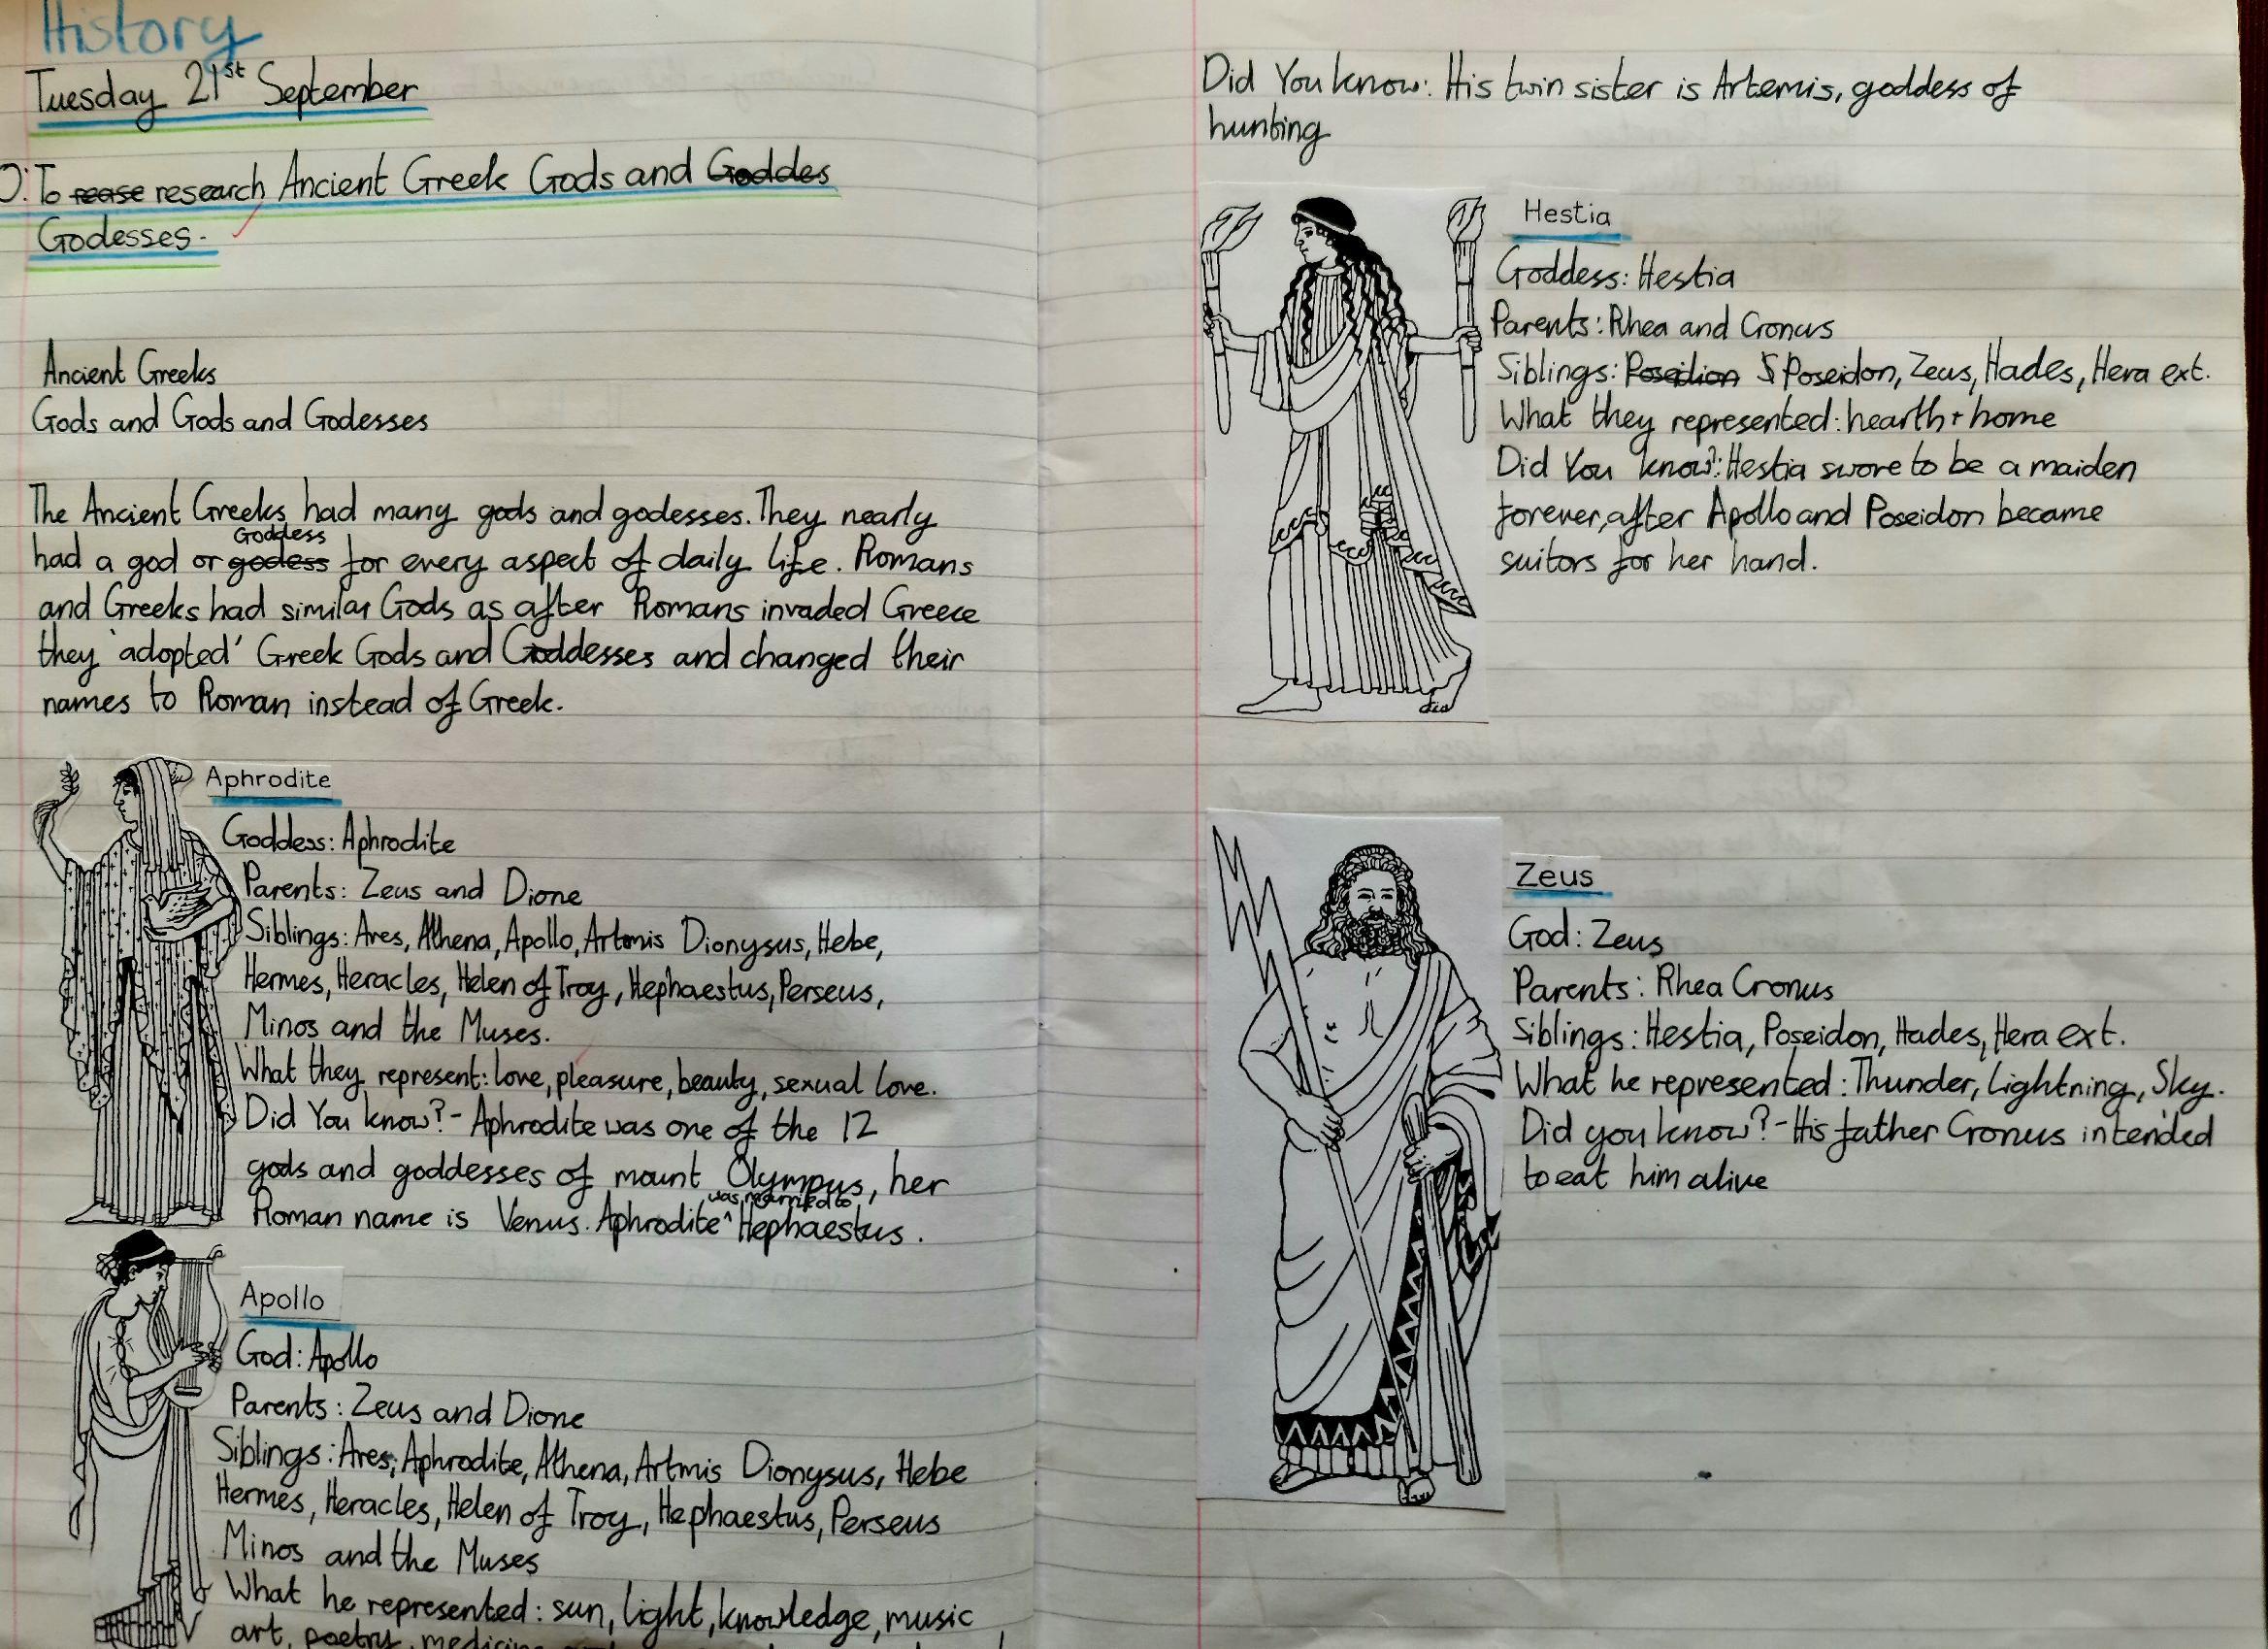 History
Tuesday 21st September
O: To rease research Ancient Greek Gods and Goddes
Godesses.
Ancient Greeks
Gods and Gods and Godesses
The Ancient Greeks had many gods and godesses. They nearly
Goddess
had a god or godess for every aspect of daily life. Romans
and Greeks had similar Gods as after Romans invaded Greece
they 'adopted' Greek Gods and Goddesses and changed their
names to Roman instead of Greek.
Aphrodite
Goddess: Aphrodite
Parents: Zeus and Dione
Siblings: Ares, Athena, Apollo, Artmis Dionysus, Hebe,
Hermes, Heracles, Helen of Troy, Hephaestus, Perseus,
Minos and the Muses.
What they represent: love, pleasure, beauty, sexual love.
Did You know?- Aphrodite was one of the 12
gods and goddesses of mount Olympus, her
was married to
Roman name is Venus. Aphrodite ^ Hephaestus.
Apollo
God: Apollo
Parents: Zeus and Dione
Siblings: Ares, Aphrodite, Athena, Artmis Dionysus, Hebe
Hermes, Heracles, Helen of Troy, Hephaestus, Perseus
Minos and the Muses
What he represented: sun, light, knowledge, music
art, poetry, medicine
Did You know: His twin sister is Artemis, goddess of
hunting
Hestia
Goddess: Hestia
Parents: Rhea and Cronus
Siblings: Poseidion Poseidon, Zeus, Hades, Hera ext.
What they represented: hearth + home
Did You know?: Hestia swore to be a maiden
forever, after Apollo and Poseidon became
suitors for her hand.
Zeus
God: Zeus
Parents: Rhea Cronus
Siblings: Hestia, Poseidon, Hades, Hera ext.
What he represented: Thunder, Lightning, Sky.
Did you know?- His father Cronus intended
to eat him alive